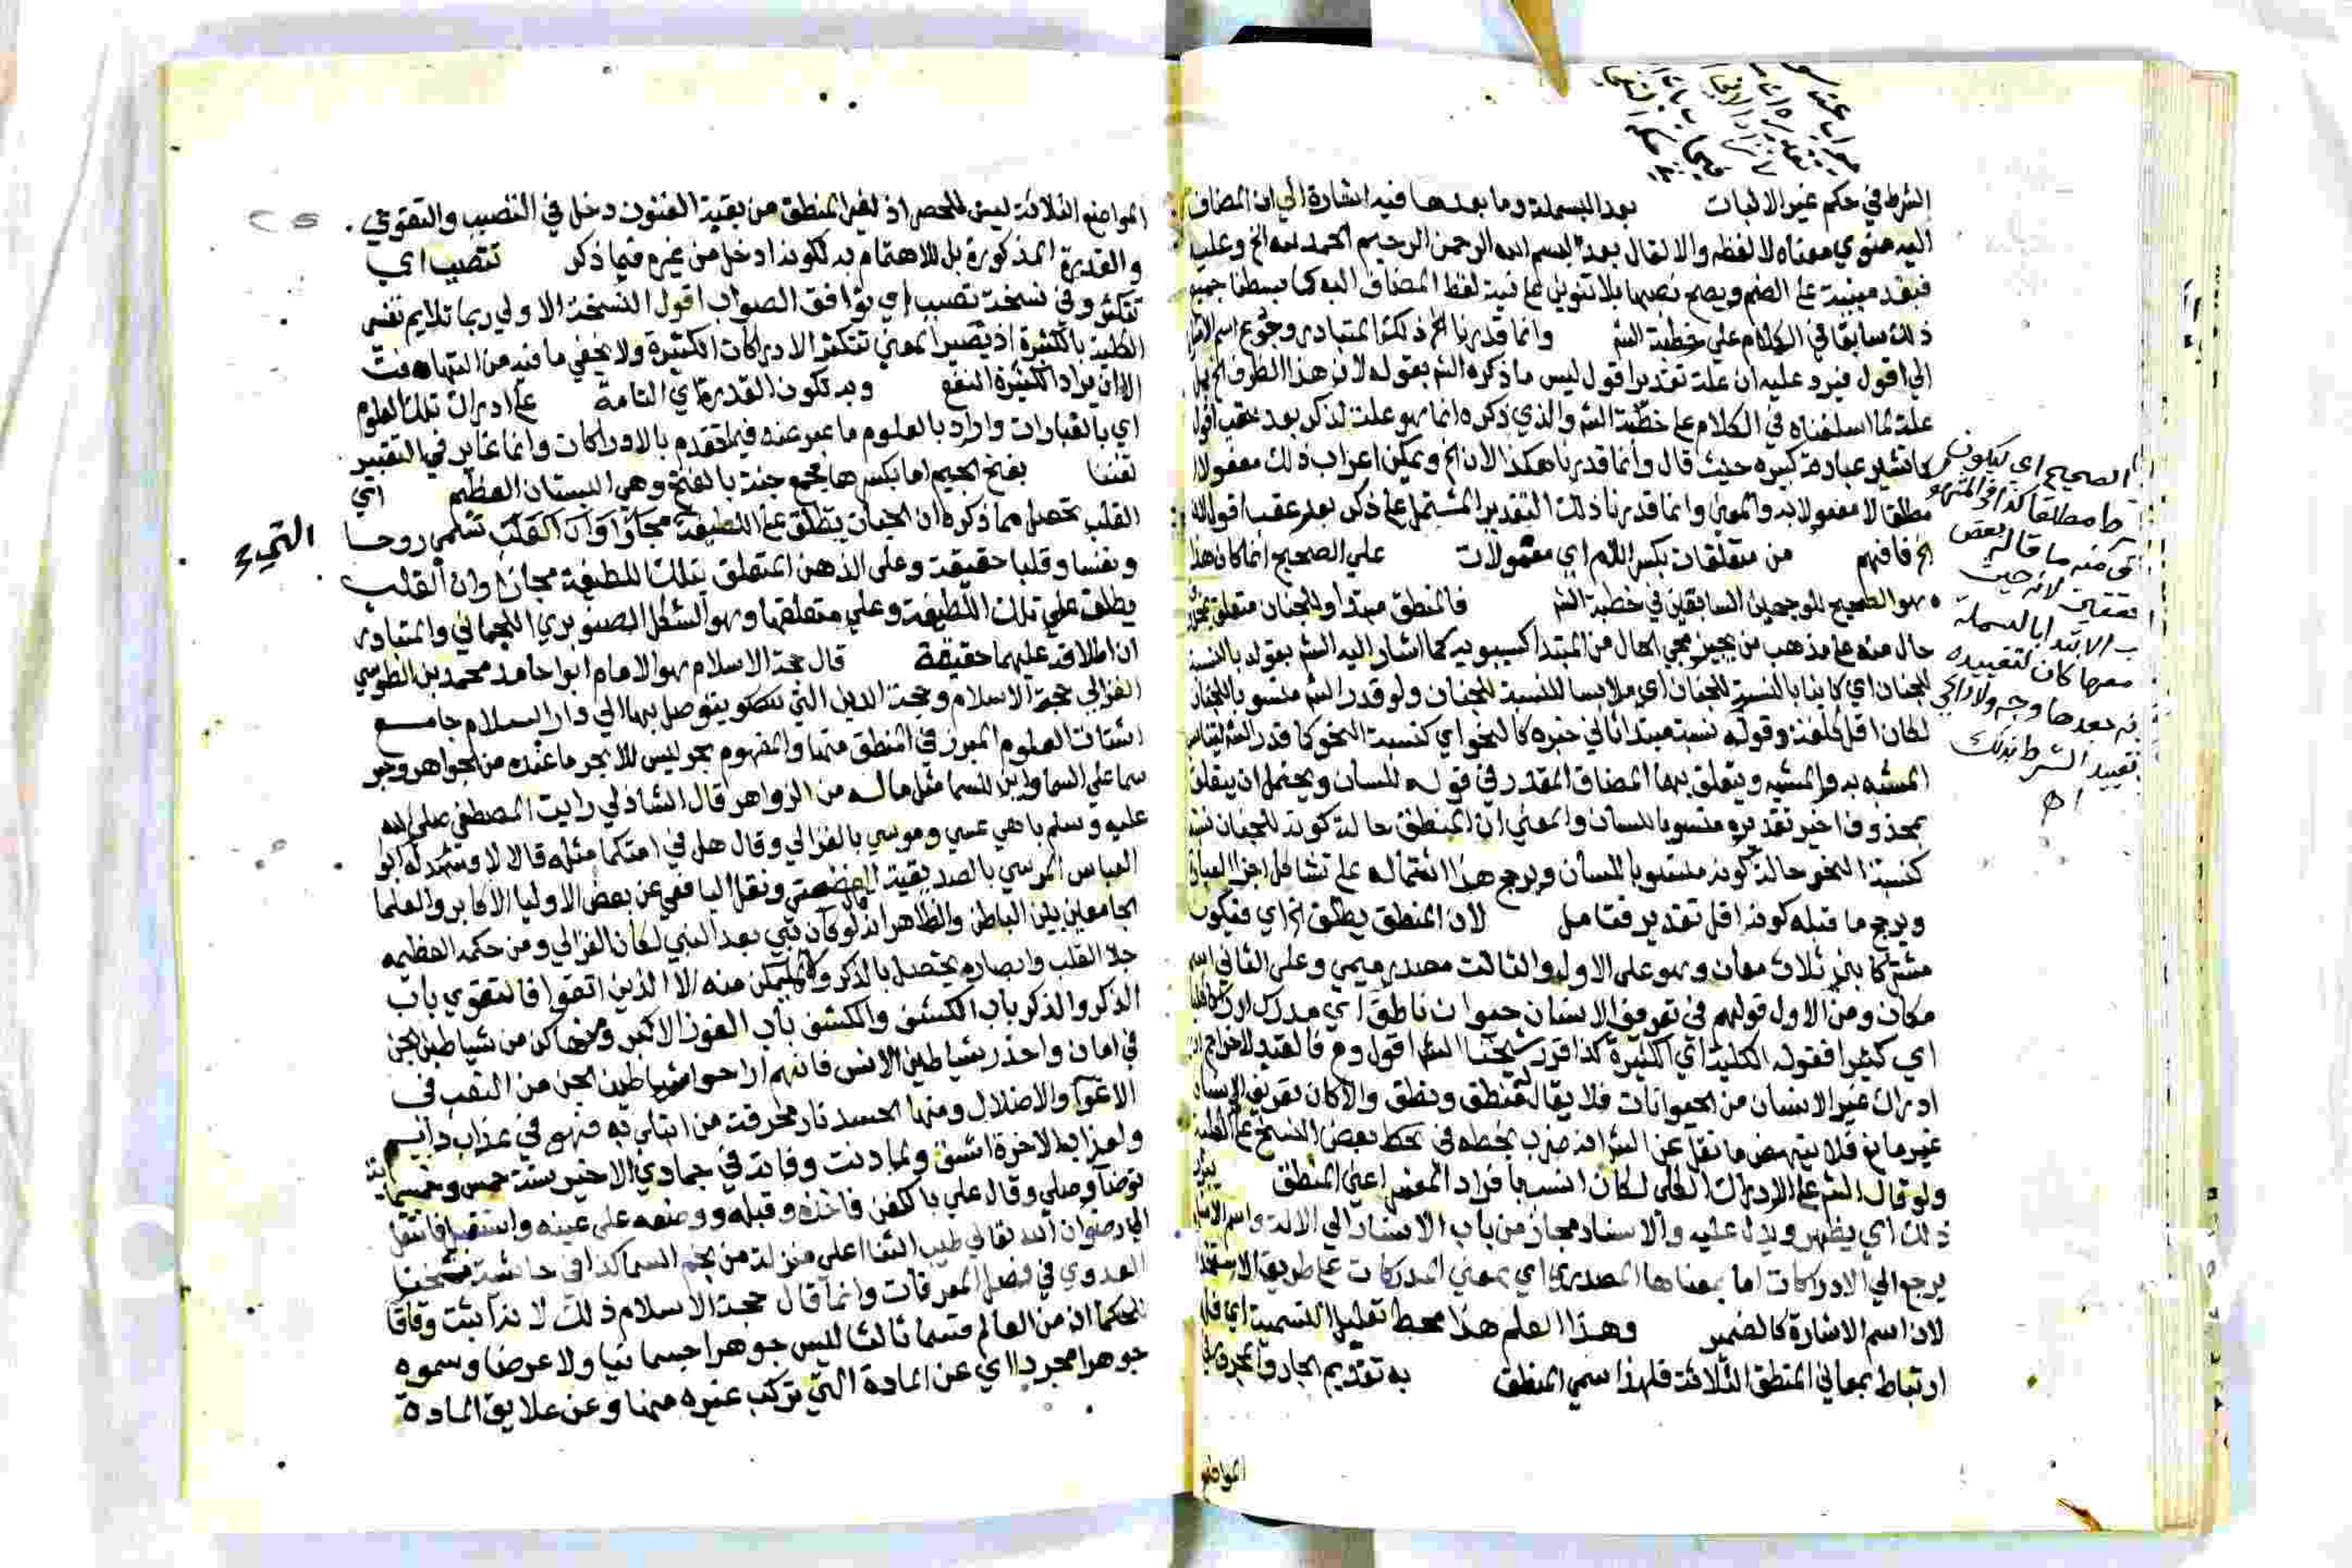 الشرط في حكم غير الاثبات بعد البسملة وما بعدها فيه اشارة الي ان المضاف
اليه منوي معناه لا لفظه والا لقال بعد بسم الله الرحمن الرحيم الحمد لله الخ وعليها
فبعد مبنية على الضم ويصح نصبها بلا تنوين على نية لفظ المضاف اليه كما بسطنا جميع
ذلك سابقا في الكلام على خطبة الشم وانما قدرنا الخ ذلك المتبادر رجوع اسم
الي اقول فيرد عليه ان علة تقدير اقول ليس ما ذكره الشم بقوله لان هذا الظرف الخ بل
علته ما اسلفناه في الكلام على خطبة الشم والذي ذكره انما هو علة لذكر بعد عقب اقول
كما تشير عبارة كبيره حيث قال وانما قدرناه هكذا لان الخ ويمكن اعراب ذلك مفعولا
مطلقا لا مفعولا به والمعنى وانما قدرنا ذلك التقدير المشتمل على ذكر بعد عقب اقول
الخ فافهم من متعلقات بكسر اللام اي معمولات علي الصحيح انما كان هذا
هو الصحيح للوجهين السابقين في خطبة الشم فالمنطق مبتدا وللجنان متعلق
حال منه على مذهب من يجيز مجي الحال من المبتدا كسيبويه كما اشار اليه الشم بقوله بالنسبة
للجنان اي كاينا بالنسبة للجنان اي ملابسا للنسبة للجنان ولو قدر الشم منسوبا للجنان
لكان اقل كلفة وقوله نسبته مبتدا ثاني خبره كالنحو اي كنسبة النحو كما قدر الشم
المشبه به والمشبه ويتعلق بها المضاف المقدر في قوله للسان ويحتمل ان يتعلق
بمحذوف اخير تقديره منسوبا للسان والمعنى ان المنطق حالة كونه للجنان
كنسبة النحو حالة كونه منسوبا للسان ويرجح هذا اشتماله على تشاكل اجزا
ويرجح ما قبله كونه اقل تقدير فتامل لان المنطق يطلق الخ اي فيكون
مشتركا بين ثلاث معان وهو على الاول والثالث مصدر ميمي وعلى الثاني اسم
مكان ومن الاول قولهم في تعريف الانسان حيوان ناطق اي مدرك
اي كثيرا فقوله الكلية اي الكثيرة كذا قرر شيخنا الشم اقول وح فالقيد لاخراج
ادراك غير الانسان من الحيوانات فلا يقال له منطق ونطق والا كان تعريف الانسان
غير مانع فلا ينهض ما نقل عن الشم انه ضرب بخطه في بعض النسخ على
ولو قال الشم على الادراك الكلي لكان انسب بافراد المفسر اعني المنطق
ذلك اي يظهر ويدل عليه والاسناد مجاز من باب الاسناد الي الالة واسم الاشارة
يرجع الي الادراكات اما بمعناها المصدري اي بمعني المدركات على طريق الاستخدام
لان اسم الاشارة كالضمير وهذا العلم هذا محط تعليل التسمية اي
ارتباط بمعاني المنطق الثلاثة فلهذا سمي المنطق به تقديم الجار والمجرور
المواضع
الصحيح اي ليكون
مطلقا كذا
منه ما قاله بعض
لانه حيث
الابتدا بالبسملة
كان لتقييده
بعدها وجه ولا
تقييد الشرط بذلك
اه
المواضع الثلاثة ليس للحصر اذ لغير المنطق من بقية الفنون دخل في التصيب والتقوي
والقدرة المذكورة بل للاهتمام به لكونه ادخل من غيره فيما ذكر تتصيب اي
تتكثر وفي نسخة تصيب اي توافق الصواب اقول النسخة الاولي ربما تلايم تفسير
الكلية بالكثيرة اذ يصير المعني تتكثر الادراكات الكثيرة ولا يخفي ما فيه من التهافت
الا ان يراد الكثيرة النفع وبه تكون القدرة اي التامة على ادراك تلك العلوم
اي بالعبارات واراد بالعلوم ما عبر عنه فيما تقدم بالادراكات وانما غاير في التعبير
تفننا بفتح الجيم اما بكسرها فجمع جنة بالفتح وهي البستان العظيم اي
القلب تحصل مما ذكره ان الجنان يطلق على اللطيفة مجازا وان القلب تسمي روحا
ونفسا وقلبا حقيقة وعلى الذهن المتعلق بتلك اللطيفة مجازا وان القلب
يطلق على تلك اللطيفة وعلي متعلقها وهو الشكل الصنوبري اللحماني والمتبادر
ان اطلاقه عليهما حقيقة قال حجة الاسلام هو الامام ابو حامد محمد بن الطوسي
الغزالي حجة الاسلام ومحجة الدين التي يتوصل بها الي دار السلام جامع
اشتات العلوم المبرز في المنطق منها والمفهوم بحر ليس للابحر ما عنده من الجواهر وحبر
سما على السما واين للسما مثل ما له من الزواهر قال الشاذلي رايت المصطفي صلي الله
عليه وسلم باهي عيسي وموسي بالغزالي وقال هل في امتكما مثله قالا لا وشهد له ابو
العباس المرسي بالصديقية العظمى ونقل اليافعي عن بعض الاوليا الاكابر والعلما
الجامعين بين الباطن والظاهر انه لو كان نبي بعد النبي لكان الغزالي ومن حكمه العظيمه
جلا القلب وابصاره يحصل بالذكر ولا يتمكن منه الا الذين اتقوا فالتقوي باب
الذكر والذكر باب الكشف والكشف باب الفوز الاكبر ومنها كن من شياطين الجن
في امان واحذر شياطين الانس فانهم اراحوا شياطين الجن من التعب في
الاغوا والاضلال ومنها الحسد نار محرقة من ابتلي به فهو في عذاب دايم
ولعذاب الاخرة اشق ولما دنت وفاته في جمادي الاخير سنة خمس وخمسماية
توضا وصلي وقال علي بالكفن فاخذه وقبله ووضعه على عينه واستقبل فانتقل
الي رضوان الله تعالي طيب الثنا اعلى منزلة من نجم السما كذا في حاشية شيخنا
العدوي في فصل المعرفات وانما قال حجة الاسلام ذلك لانه اثبت وفاقا
للحكما ان من العالم قسما ثالثا ليس جوهرا جسمانيا ولا عرضا وسموه
جوهرا مجردا اي عن المادة التي تركب غيره منها وعن علايق المادة